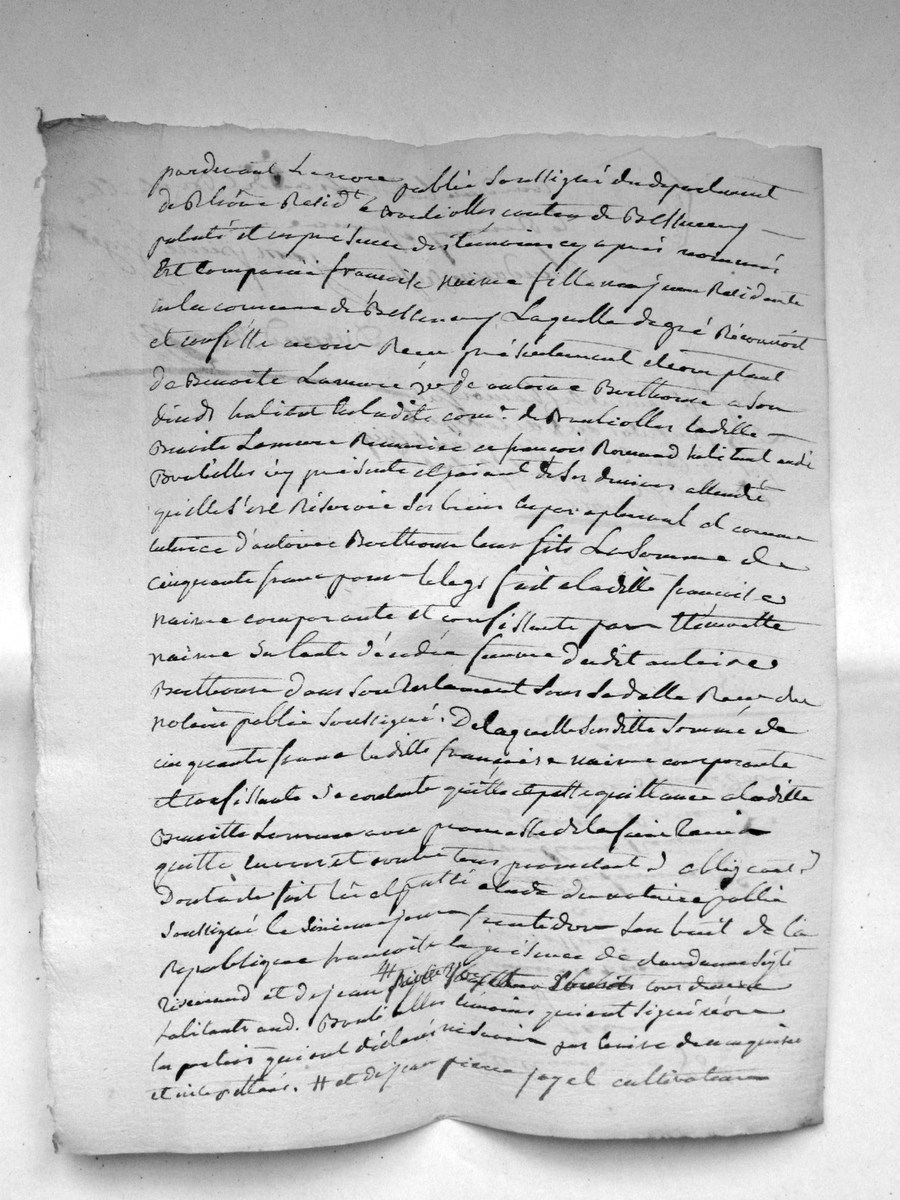 pardevant Le notre public soussigné du département
de Rhône Résidt à Brulliolles canton de Bessenay
patenté et en présence des témoins cy après nommés
Est Comparüe françoise naime fille majeure Résidante
en la commune de Bessenay Laquelle de gré Reconnoît
et confesse avoir Reçu présentement et comptant
de Benoite Lamure ve de antoine Berthoux a son
vivant habitant en ladite come de Brulliolles laditte
Benoite Lamure Remariée a françois Romand habitant audi
Brulliolles icy présente et paiant de ses deniers attendu
quelle s'est Réservée ses biens et comme
tutrice d'antoine Berthoux leur fils La Somme de
cinquante franc pour le legs fait a laditte françoise
naime comparante et confessante par thimotte
naime sa tante décédée femme dudit antoine
Berthoux dans son testament sous sa datte Reçu du
notaire public soussigné. De laquelle susditte somme de
cinquante franc laditte françoise naime comparante
et confessante se contente quitte et passe quittance a laditte
Benoitte Lamure avec promesse de la faire tenir
quitte envers et contre tous promettant obligeant
Dont acte fait lû et passé etude du notaire public
soussigné le sixieme jour fructidor l'an huit de la
Republique françoise en présence de
et de jean tous deux
habitants aud. Brulliolles témoins qui ont signé non
les parties qui ont déclaré ne savoir par Enquise
et interpellés. # et de jean pierre cultivateur